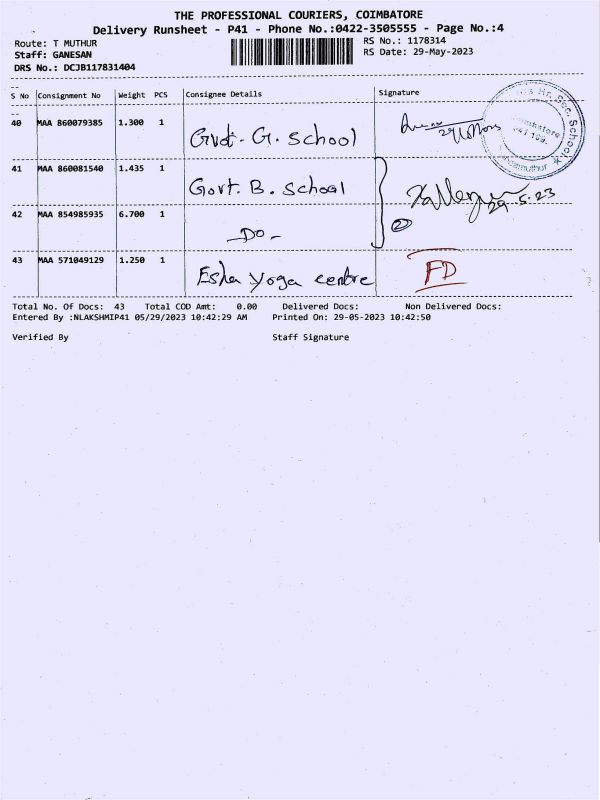 THE PROFESSIONAL COURIERS, COIMBATORE
Delivery Runsheet - P41 - Phone No.:0422-3505555 - Page No.:4
Route: T MUTHUR RS No.: 1178314
Staff: GANESAN RS Date: 29-May-2023
DRS No.: DCJB117831404
S No Consignment No Weight PCS Consignee Details Signature
40 MAA 860079385 1.300 1 Gvot. G. School
41 MAA 860081540 1.435 1 Govt. B. School
42 MAA 854985935 6.700 1 -Do- 2 29.5.23
43 MAA 571049129 1.250 1 Esha yoga centre FD
Total No. Of Docs: 43 Total COD Amt: 0.00 Delivered Docs: Non Delivered Docs:
Entered By :NLAKSHMIP41 05/29/2023 10:42:29 AM Printed On: 29-05-2023 10:42:50
Verified By Staff Signature